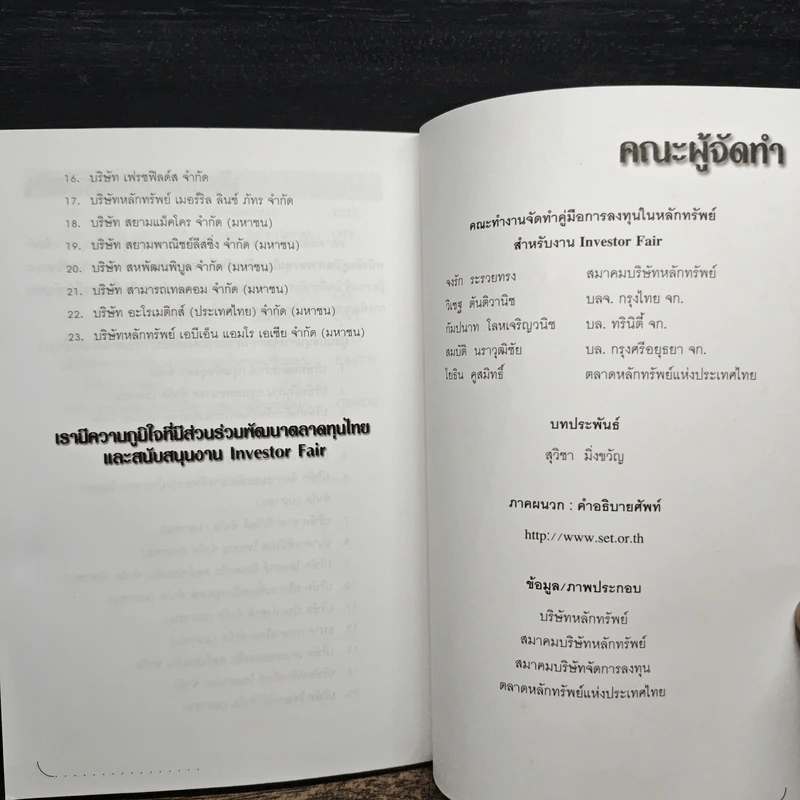 16. บริษัท เฟรชฟิลด์ส จำกัด
17. บริษัทหลักทรัพย์ เมอร์ริล ลินช์ ภัทร จำกัด
18. บริษัท สยามแม็คโคร จำกัด (มหาชน)
19. บริษัท สยามพาณิชย์ลีสซิ่ง จำกัด (มหาชน)
20. บริษัท สหพัฒนพิบูล จำกัด (มหาชน)
21. บริษัท สามารถเทลคอม จำกัด (มหาชน)
22. บริษัท อะโรเมติกส์ (ประเทศไทย) จำกัด (มหาชน)
23. บริษัทหลักทรัพย์ เอบีเอ็น แอมโร เอเซีย จำกัด (มหาชน)
เรามีความภูมิใจที่มีส่วนร่วมพัฒนาตลาดทุนไทย
และสนับสนุนงาน Investor Fair
คณะผู้จัดทำ
คณะทำงานจัดทำคู่มือการลงทุนในหลักทรัพย์
สำหรับงาน Investor Fair
จงรัก ระรวยทรง สมาคมบริษัทหลักทรัพย์
วิเชฐ ตันติวานิช บลจ. กรุงไทย จก.
กัมปนาท โลหเจริญวนิช บล. ทรินิตี้ จก.
สมบัติ นราวุฒิชัย บล. กรุงศรีอยุธยา จก.
โยธิน คูสมิทธิ์ ตลาดหลักทรัพย์แห่งประเทศไทย
บทประพันธ์
สุวิชา มิ่งขวัญ
ภาคผนวก : คำอธิบายศัพท์
http://www.set.or.th
ข้อมูล/ภาพประกอบ
บริษัทหลักทรัพย์
สมาคมบริษัทหลักทรัพย์
สมาคมบริษัทจัดการลงทุน
ตลาดหลักทรัพย์แห่งประเทศไทย